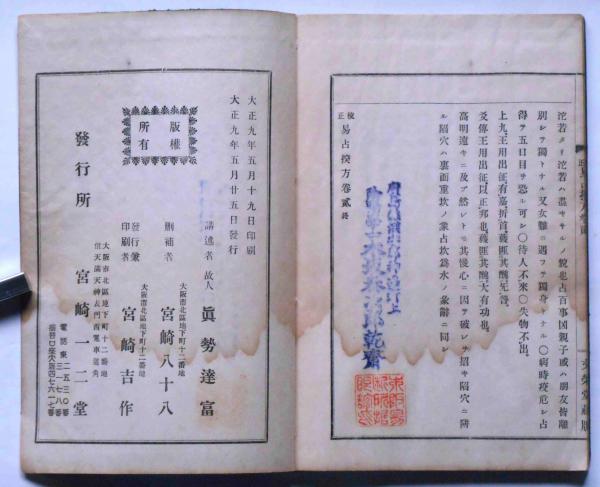 沱若タリ沱若ハ盡キサルノ貌也占百事凶親子或ハ朋友皆離
別シテ獨トナル又女難ニ遇フテ獨身トナル〇病時疫危シ占
得テ五口目ヲ恐ル可シ〇待人不來〇失物不出。
上九。王用出征。有嘉折首。獲匪其醜。无咎。
爻傳。王用出征。以正邦也。獲匪其醜。大有功也。
高明遠キニ及ブ然レトモ其慢心ニ因ツテ破レヲ招キ陷穴ニ陷
ル陷穴ハ裏面重坎ノ象占坎爲水ノ彖辭ニ同シ
校正 易占揆方卷貳終
大正九年五月十九日印刷
大正九年五月廿五日發行
版權所有
講述者 故人 眞勢達富
刪補者 大阪市北區地下町十二番地 宮崎八十八
發行兼印刷者 大阪市北區地下町十二番地 宮崎吉作
發行所
大阪市北區地下町十二番地
宮崎一二堂
電話東 二五三〇番
三一七八番
振替口座大阪四七六一七番